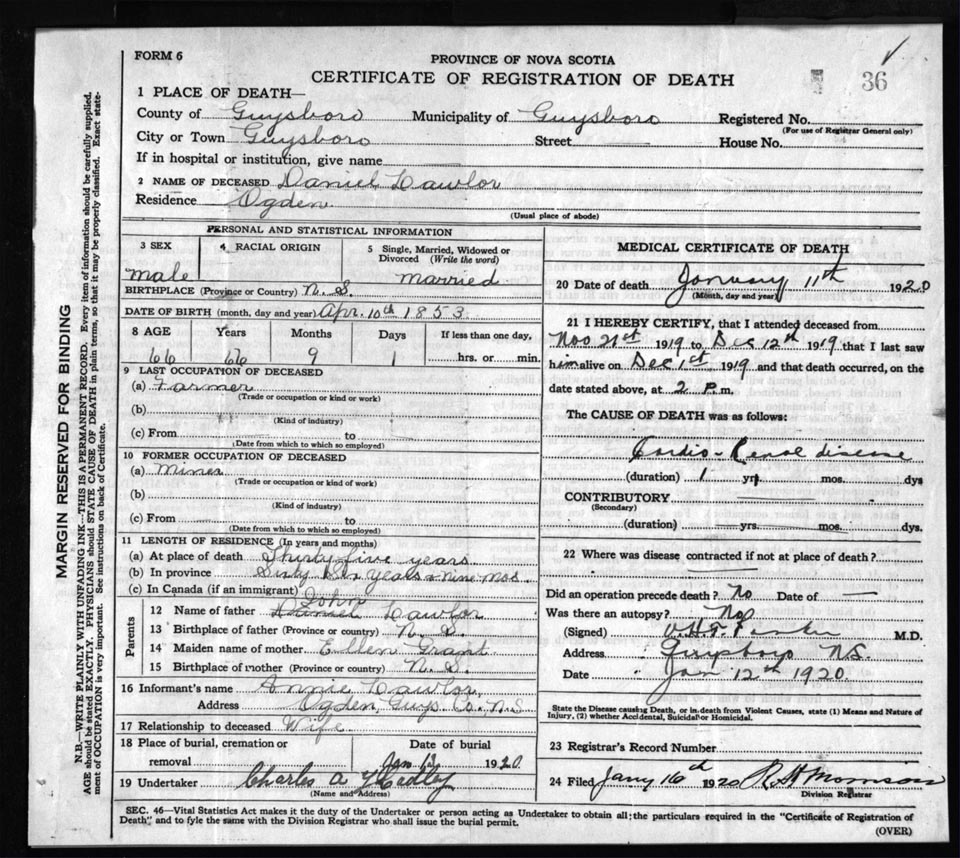 FORM 6
PROVINCE OF NOVA SCOTIA
CERTIFICATE OF REGISTRATION OF DEATH
36
1 PLACE OF DEATH—
County of Guysboro Municipality of Guysboro Registered No.
(For use of Registrar General only)
City or Town Guysboro Street House No.
If in hospital or institution, give name
2 NAME OF DECEASED Daniel Lawlor
Residence Ogden
(Usual place of abode)
PERSONAL AND STATISTICAL INFORMATION
3 SEX 4 RACIAL ORIGIN 5 Single, Married, Widowed or Divorced (Write the word)
male married
BIRTHPLACE (Province or Country) N. S.
DATE OF BIRTH (month, day and year) Apr. 10th 1853
8 AGE Years Months Days If less than one day,
66 66 9 1 hrs. or min.
9 LAST OCCUPATION OF DECEASED
(a) Farmer
(Trade or occupation or kind or work)
(b)
(Kind of industry)
(c) From to
(Date from which to which so employed)
10 FORMER OCCUPATION OF DECEASED
(a) Miner
(Trade or occupation or kind of work)
(b)
(Kind of industry)
(c) From to
(Date from which to which so employed)
11 LENGTH OF RESIDENCE (In years and months)
(a) At place of death Thirty five years
(b) In province Sixty Six years & nine mos.
(c) In Canada (if an immigrant)
Parents
John
12 Name of father Daniel Lawlor
13 Birthplace of father (Province or country) N. S.
14 Maiden name of mother Ellen Grant
15 Birthplace of mother (Province or country) N. S.
16 Informant's name Annie Lawlor
Address Ogden, Guys. Co., N.S
17 Relationship to deceased Wife
18 Place of burial, cremation or removal Date of burial
Jan 1920
19 Undertaker Charles A Hadley
(Name and Address)
MEDICAL CERTIFICATE OF DEATH
20 Date of death January 11th 1920
(Month, day and year)
21 I HEREBY CERTIFY, that I attended deceased from
Nov 21st 1919 to Dec 12th 1919 that I last saw
him alive on Dec 1st 1919 and that death occurred, on the
date stated above, at 2 P.m.
The CAUSE OF DEATH was as follows:
Cardio-Renal disease
(duration) 1 yr. mos. dys
CONTRIBUTORY
(Secondary)
(duration) yrs. mos. dys.
22 Where was disease contracted if not at place of death?
Did an operation precede death? No Date of —
Was there an autopsy? No
(Signed) Parker M.D.
Address Guysboro N.S.
Date Jan 12th 1920
State the Disease causing Death, or in death from Violent Causes, state (1) Means and Nature of
Injury, (2) whether Accidental, Suicidal or Homicidal.
23 Registrar's Record Number
24 Filed Jany 16th 1920 R H Morrison
Division Registrar
SEC. 46—Vital Statistics Act makes it the duty of the Undertaker or person acting as Undertaker to obtain all the particulars required in the "Certificate of Registration of
Death" and to fyle the same with the Division Registrar who shall issue the burial permit.
(OVER)
MARGIN RESERVED FOR BINDING
N.B.—WRITE PLAINLY WITH UNFADING INK—THIS IS A PERMANENT RECORD. Every item of information should be carefully supplied.
AGE should be stated EXACTLY. PHYSICIANS should STATE CAUSE OF DEATH in plain terms, so that it may be properly classified. Exact state-
ment of OCCUPATION is very important. See instructions on back of Certificate.